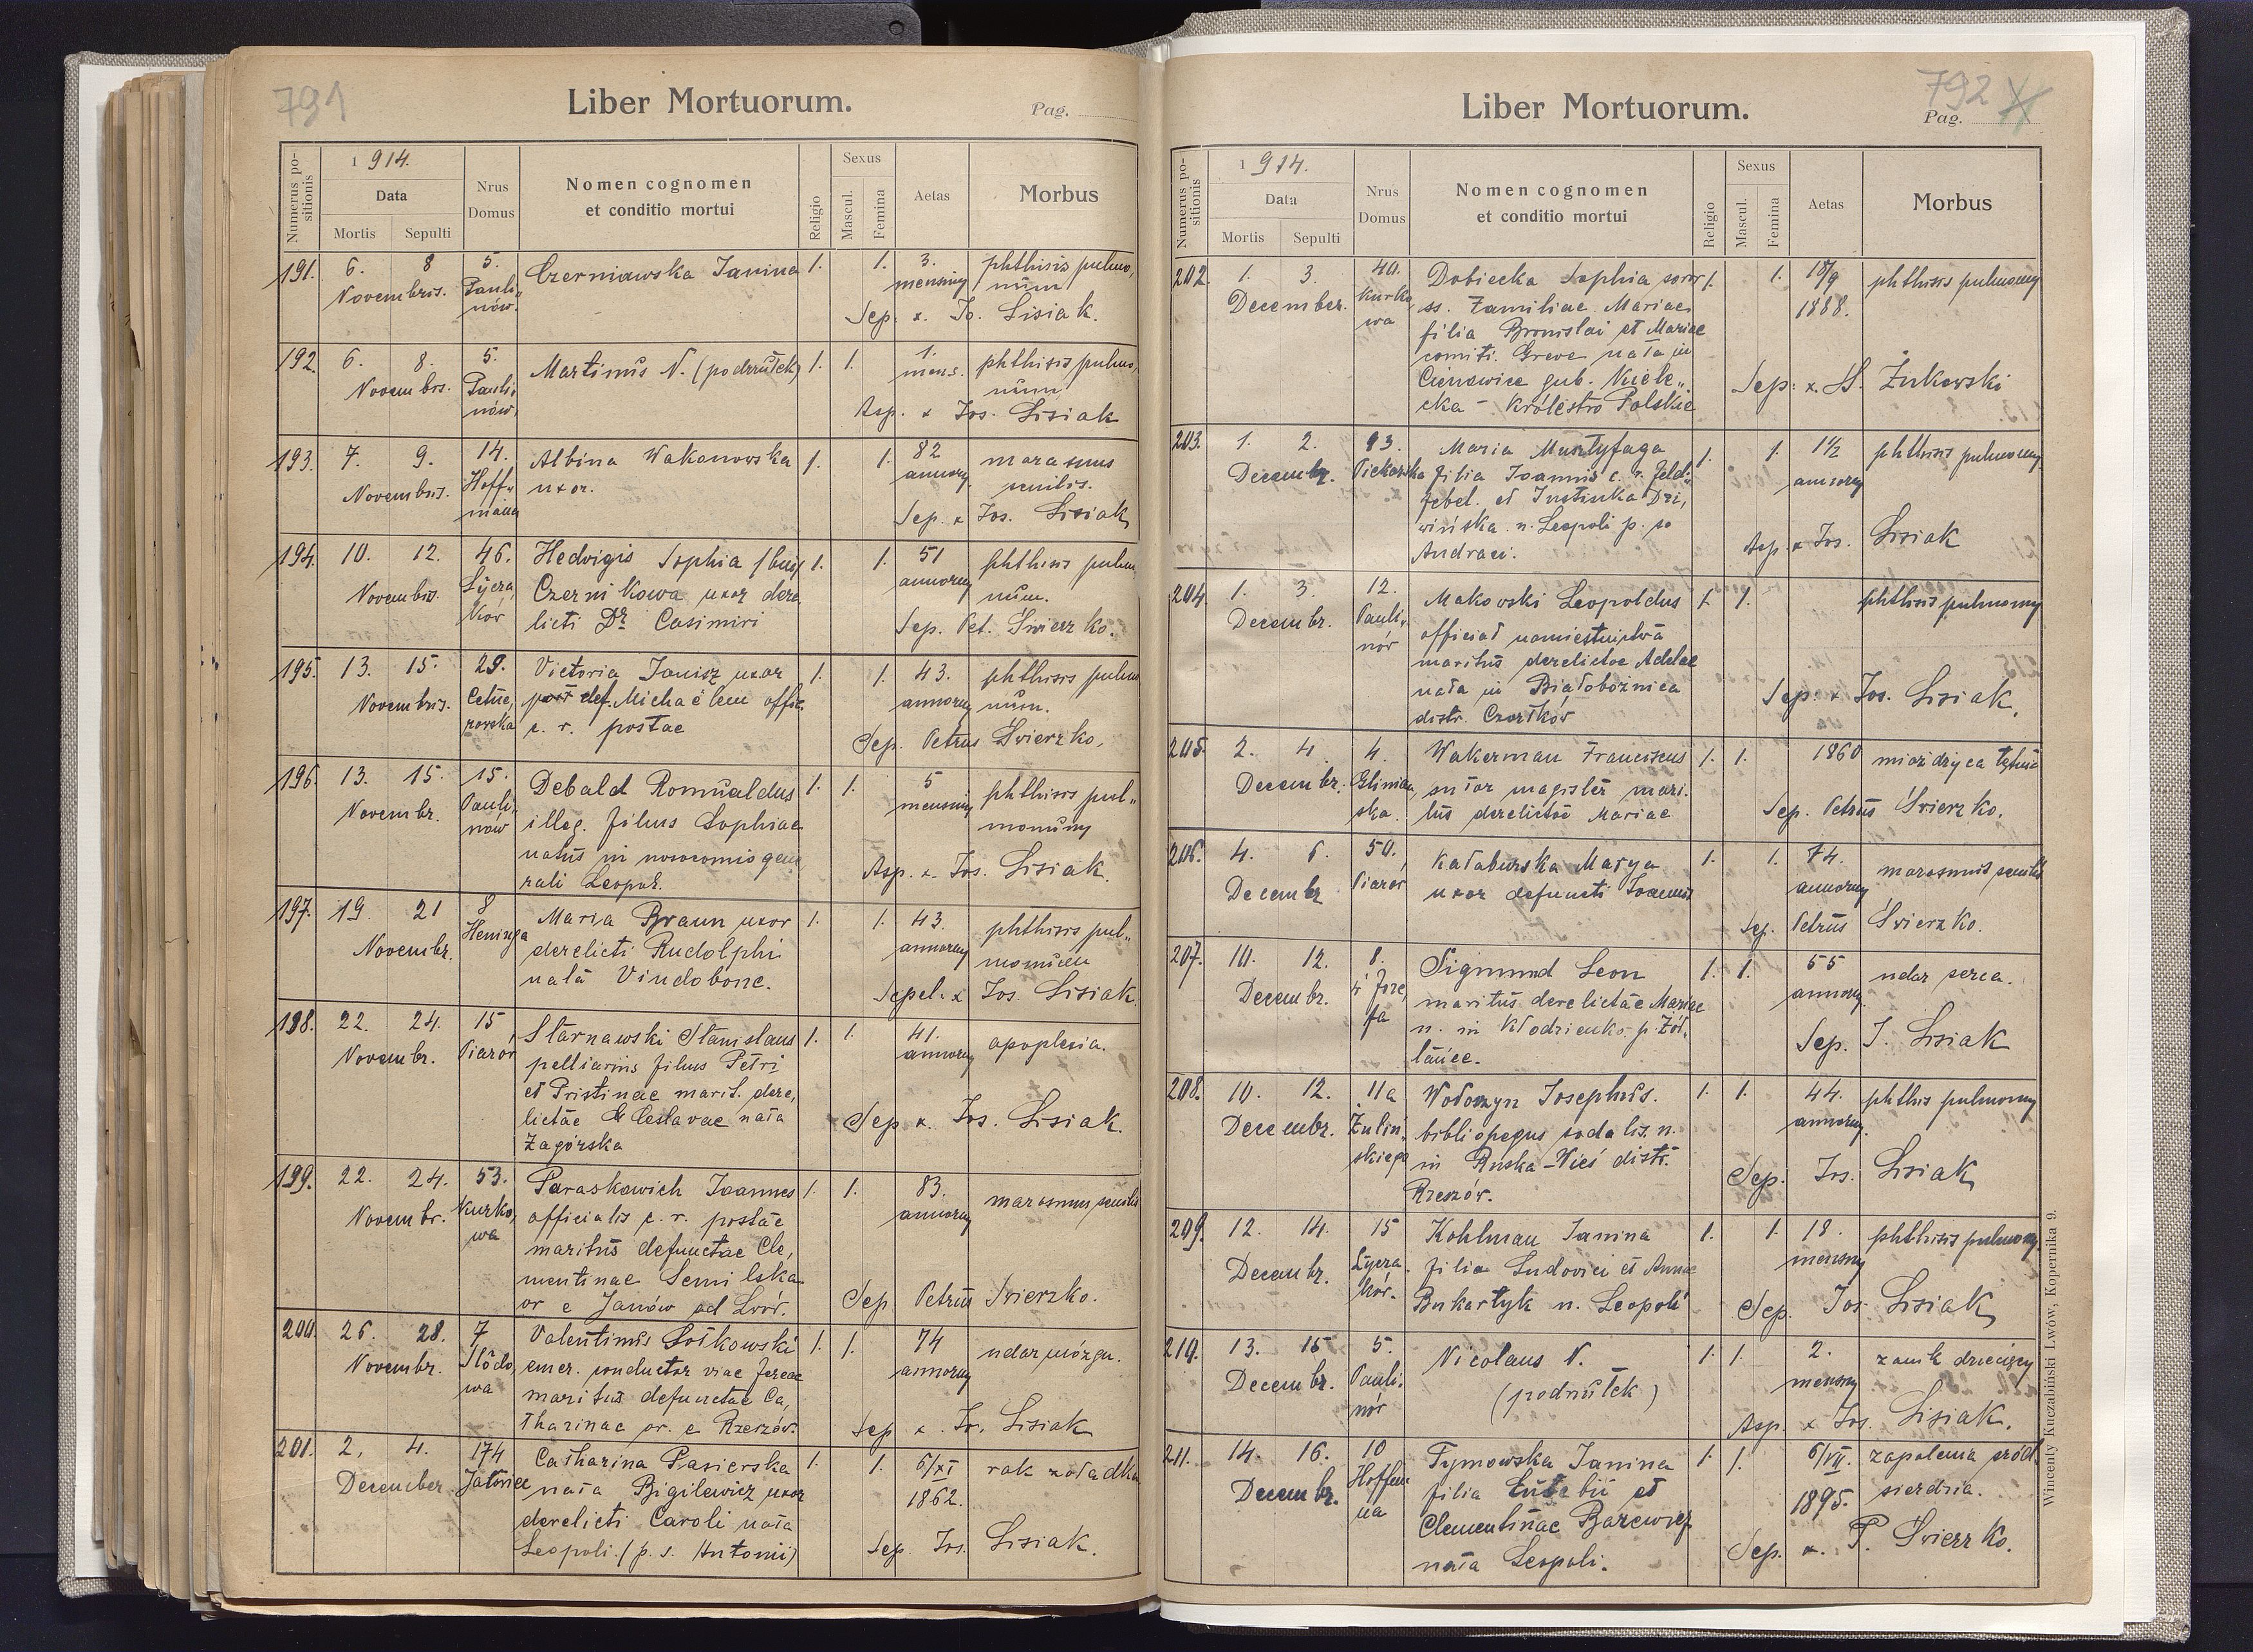 791
Liber Mortuorum.
Pag.
Numerus positionis
1 914.
Data
Mortis Sepulti
Nrus Domus
Nomen cognomen
et conditio mortui
Religio
Sexus
Mascul. Femina
Aetas
Morbus
191. 6. 8 5. Czerniawska Janina 1. 1. 3. phthisis pulmo,
Novembris. Pauli, mensium num
nów. Sep. x. Jo. Lisiak.
192. 6. 8. 5. Martinus N. (podrzutek) 1. 1. 1. phthisis pulmo,
Novembrs. Pauli, mens. num
nów. Asp. x Jos. Lisiak
193. 7. 9. 14. Albina Wakanowska 1. 1. 82 marasmus
Novembris. Hoff, uxor. annory senilis.
mana Sep. x Jos. Lisiak
194. 10. 12. 46. Hedvigis Sophia 1. 1. 51 phthisis pulm
Novembris. Łycza, Czernikowa uxor dere annorum num.
ków licti Dr Casimiri Sep. Pet. Świerzko.
195. 13. 15. 29. Victoria Janisz uxor 1. 1. 43. phthisis pulm
Novembris. Cetne, post def. Michaëlem offic. annorum num.
rowska c. r. postae Sep. Petrus Świerzko.
196. 13. 15. 15. Debald Romualdus 1. 1. 5 phthisis pul„
Novembr. Pauli, illeg. filius Sophiae mensium monum
nów natus in nosocomio gene
rali Leopol. Asp. x. Jos. Lisiak.
197. 19. 21 8 Maria Braun uxor 1. 1. 43. phthisis pul„
Novembr. Heninga derelicti Rudolphi annorum monum
nata Vindobone. Sepel. x Jos. Lisiak.
198. 22. 24. 15 Starnawski Stanislaus 1. 1. 41. apoplexia.
Novembr. Piarów pelliarius filius Petri annorum
et Pristinae marit. dere,
lictae Ceslavae nata Sep x. Jos. Lisiak.
Zagórska
199. 22. 24. 53. Paraskowich Joannes 1. 1. 83. marasmus senilis
Novembr. Kurko, officialis c. r. postae annorum
wa maritus defunctae Cle,
mentinae Semilska
or e Janów ad Lwów. Sep Petrus Świerzko.
200. 26. 28. 7 Valentinus 1. 1. 74 udar mózgu.
Novembr. Słodo, emer. conductor viae fereae annorum
wa maritus defunctae Ca,
tharinae or. e Rzeszów. Sep x. Jo. Lisiak
201. 2. 4. 174 Catharina Pasierska 1. 1. 6/XI rak żołądka
December. nata Bigilewicz uxor 1862.
derelicti Caroli nata
Leopoli. (p. s. Antonii) Sep. Jos. Lisiak.
792
Liber Mortuorum.
Pag.
Numerus positionis
1 914.
Data
Mortis Sepulti
Nrus
Domus
Nomen cognomen
et conditio mortui
Religio
Sexus
Mascul. Femina
Aetas
Morbus
202. 1. 3. 40. Dobiecka Sophia soror 1. 1. 18/9 phthisis pulmonum
December. Kurko, ss. Familiae Mariae 1888.
wa filia Bronislai et Mariae
comiti. Greve nata in
gub. Kiele„ Sep: x. H. Żukowski
cka - Królestwo Polskie
203. 1. 2. 93. Maria Muntyfaga 1. 1. 1½ phthisis pulmonum
Decembr. Piekarska filia Joannis c. r. feld„ annorum
febel. et Justinka Dzi,
wińska n. Leopoli p. s.
Andraei. Asp. x Jos. Lisiak
204. 1. 3. 12. Makowski Leopoldus 1. 1. phthisis pulmonum
Decembr. Pauli„ officiał namiestnictwa
nów maritus derelictae Adelae
nata in Białobożnica Sep. x Jos. Lisiak.
distr. Czortków
205. 2. 4. 4. Wakerman Franciscus 1. 1. 1860 miażdżyca tętnic
Decembr. Glinian, sutor magister mari.
ska. tus derelictae Mariae Sep. Petrus Świerzko.
206. 4. 6. 50. Kataburska Marya 1. 1. 74. marasmus senilis
Decembr Piarów uxor defuncti Joannis annorum
Sep. Petrus Świerzko.
207. 10. 12. 8. Sigmund Leon 1. 1. 55 udar serca.
Decembr. ś Joze, maritus derelictae Mariae annorum
fa n. in Kłodzienko p. Żół.
tańce. Sep. J. Lisiak
208. 10. 12. 11a Wołoszyn Josephus. 1. 1. 44. phthis pulmonum
Decembr. Żuliń, bibliopegus sodalis. n. annorum
skiego in Ruska-Wieś distr.
Rzeszów. Sep. Jos. Lisiak
209. 12. 14. 15 Kohlman Janina 1. 1. 18. phthisis pulmonum
Decembr. Łycza. filia Ludovici et Annae mensium
ków. Bukartyk n. Leopoli Sep. Jos. Lisiak
210. 13. 15 5. Nicolaus N. 1. 1. 2. zanik dziecięcy
Decembr. Pauli. (podrzutek) mensium
nów Asp. x Jos. Lisiak.
211. 14. 16. 10 Tymowska Janina 1. 1. 6/VII. zapalenie śród.
Decembr. Hoffma filia Eusebii et 1895. sierdzia.
na Clementinae Barewicz
nata Leopoli. Sep. x. P. Świerzko.
Wincenty Kuczabiński Lwów, Kopernika 9.